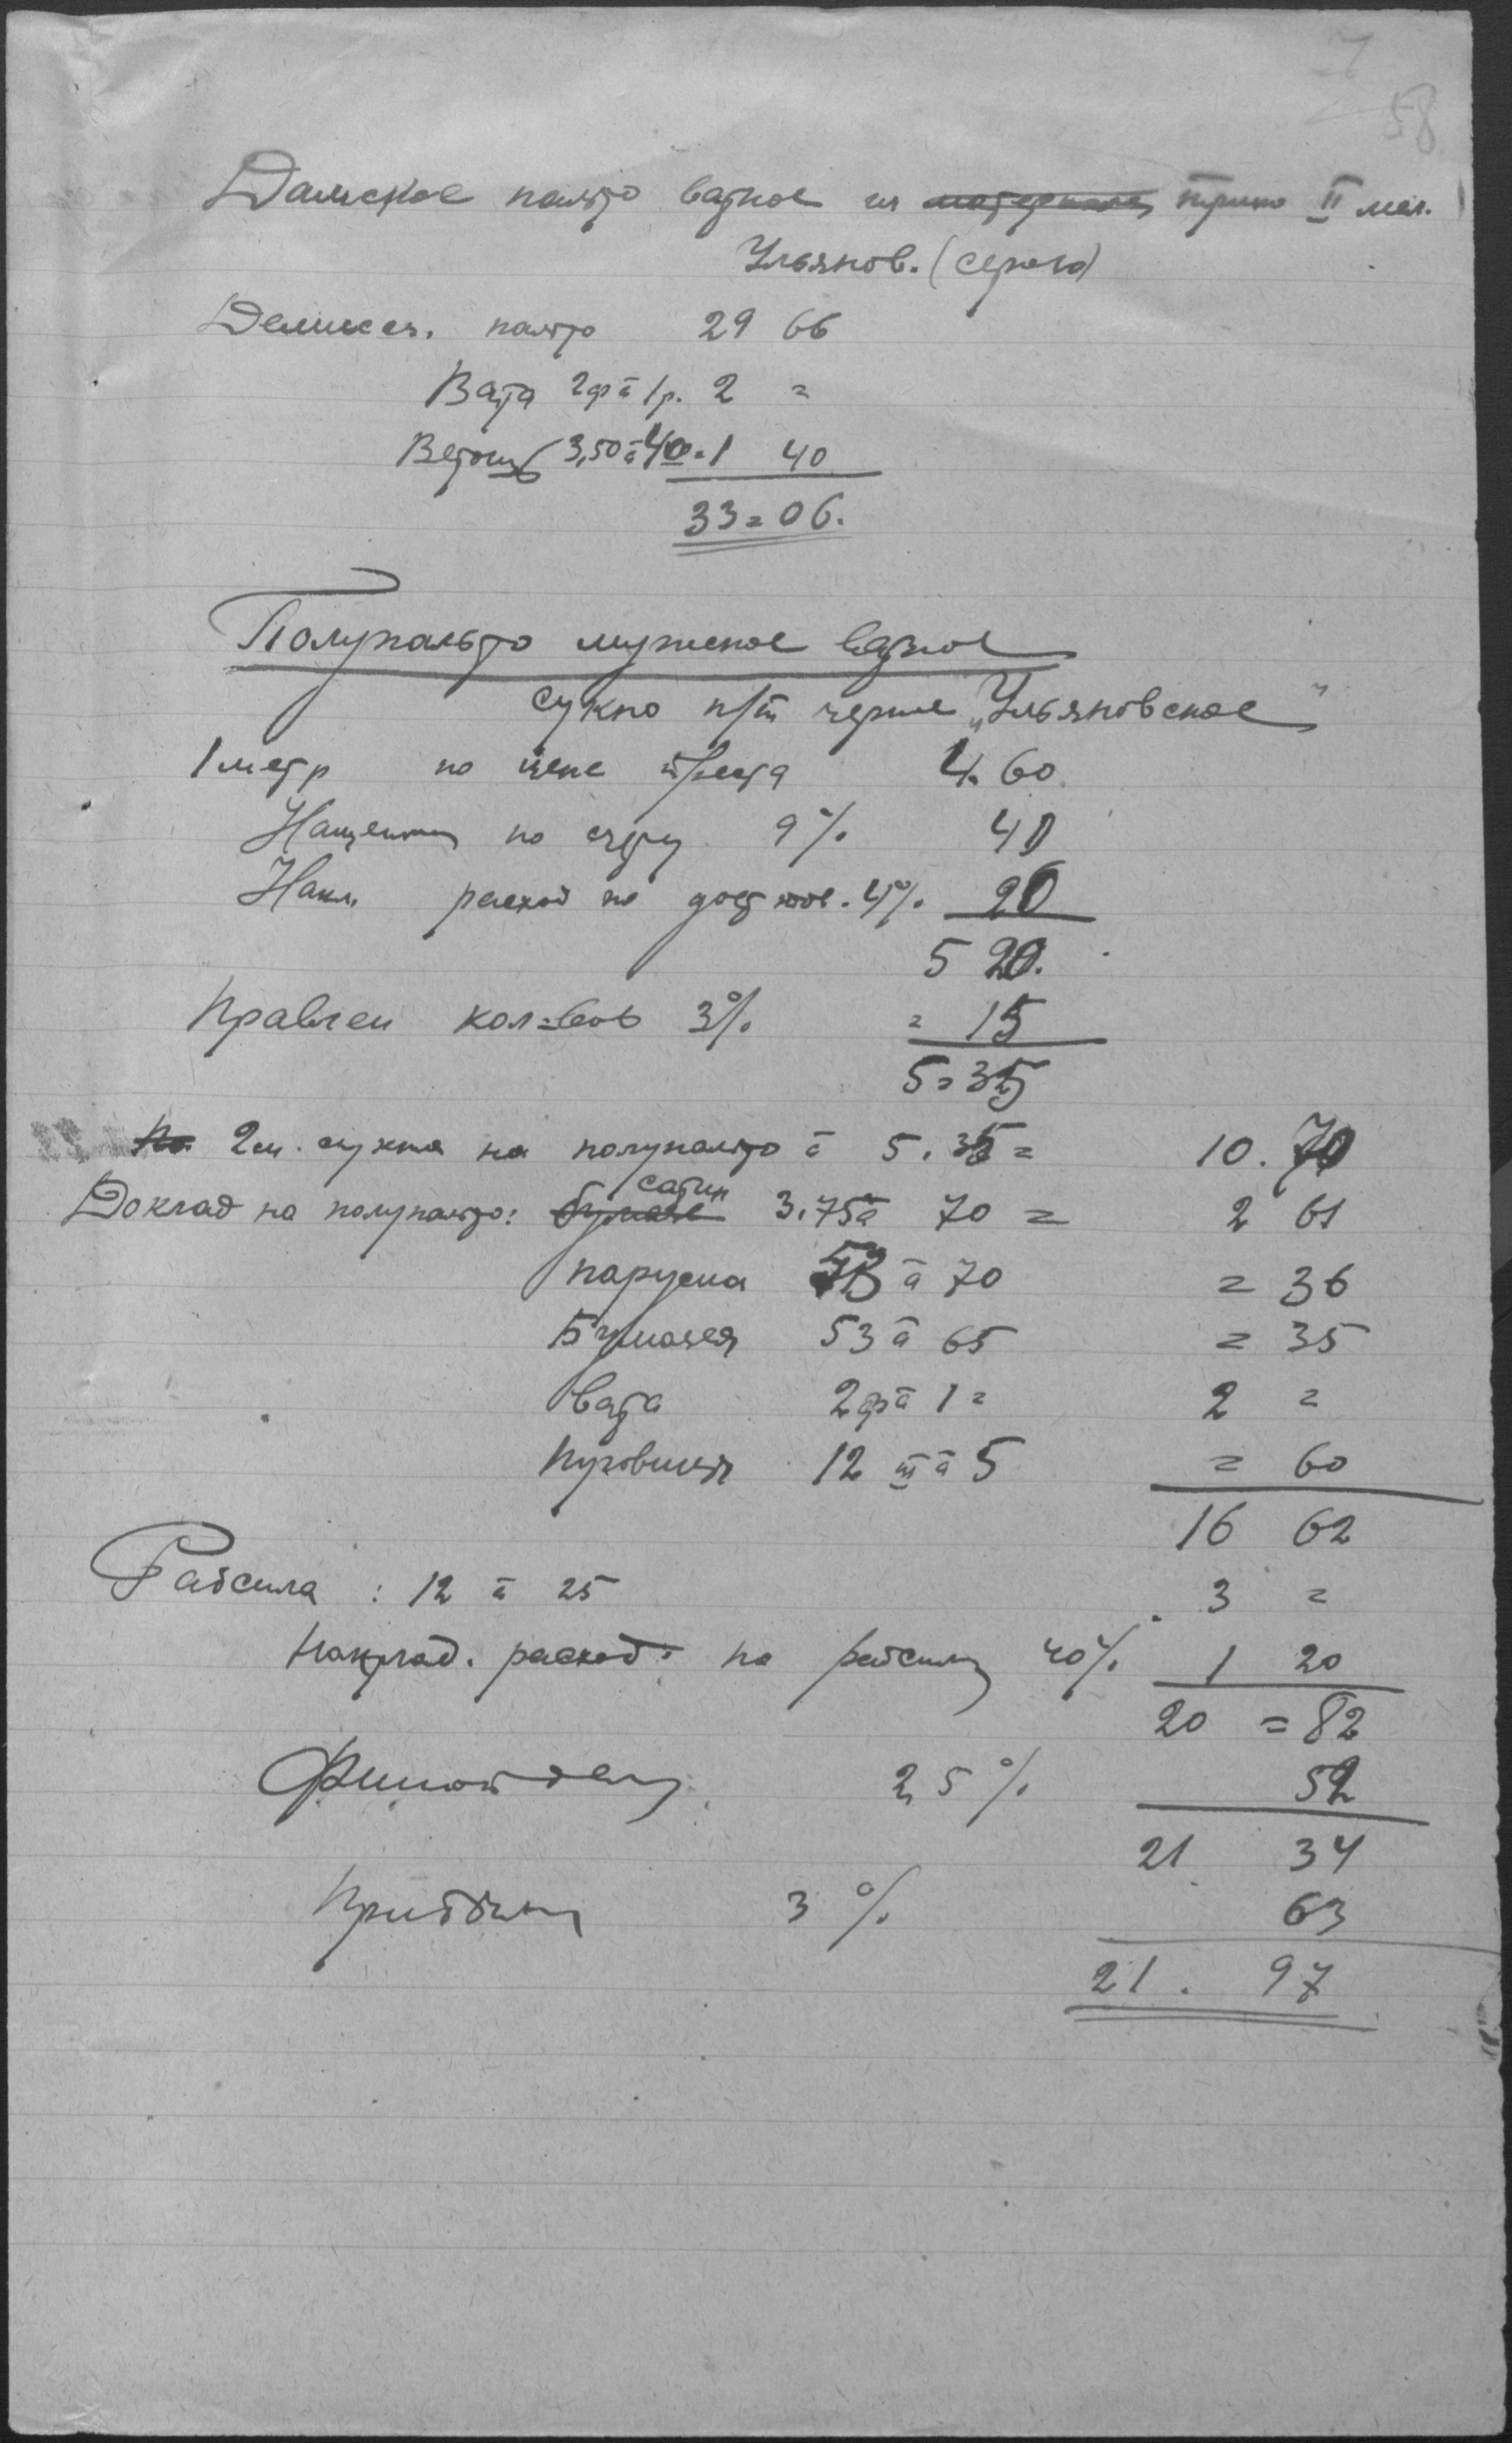 58
Дамское пальто ватное из материала трико II мел.
Ульянов. (серого)
Демисез. пальто 29 66
Вата 2ф à 1р. 2 =
Ветошь 3,50 à 40 = 1 40
33 = 06.
Полупальто мужское ватное
сукно п/ш черное „Ульяновское"
1 метр по цене треста 4. 60
Наценка по счету 9% 40
Накл. расход по дост тов. 4% 20
5 20.
Правлен кол-вов 3% = 15
5 = 35
На 2 м. сукна на полупальто à 5. 35 = 10. 70
Доклад на полупальто: бумазея сатин 3.75 à 70 = 2 61
парусина 53 à 70 = 36
Бумазея 53 à 65 = 35
вата 2ф à 1 = 2 =
Пуговицы 12 ш à 5 = 60
16 62
Рабсила : 12 à 25 3 =
Наклад. расход. на рабсилу 40% 1 20
20 = 82
Финотдел 2,5% 52
21 34
Прибыль 3% 63
21. 97